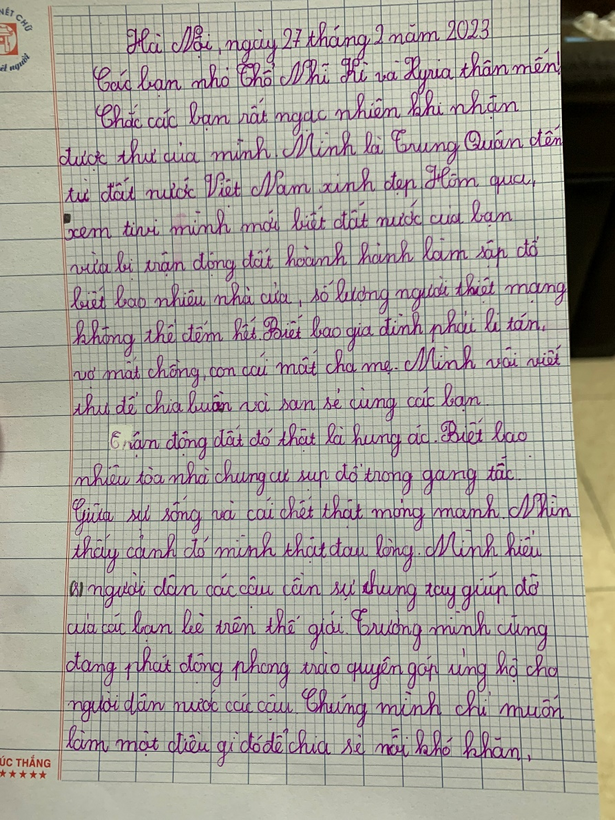 NÉT CHỮ
nết người
Hà Nội, ngày 27 tháng 2 năm 2023
Các bạn nhỏ Thổ Nhĩ Kì và Xyria thân mến!
Chắc các bạn rất ngạc nhiên khi nhận
được thư của mình. Mình là Trung Quán đến
từ đất nước Việt Nam xinh đẹp. Hôm qua,
xem tivi mình mới biết đất nước của bạn
vừa bị trận động đất hoành hành làm sập đổ
biết bao nhiêu nhà cửa, số lượng người thiệt mạng
không thể đếm hết. Biết bao gia đình phải li tán,
vợ mất chồng, con cái mất cha mẹ. Mình vội viết
thư để chia buồn và san sẻ cùng các bạn.
Trận động đất đó thật là hung ác. Biết bao
nhiêu tòa nhà chung cư sụp đổ trong gang tấc.
Giữa sự sống và cái chết thật mỏng manh. Nhìn
thấy cảnh đó mình thật đau lòng. Mình hiểu
người dân các cậu cần sự chung tay giúp đỡ
của các bạn bè trên thế giới. Trường mình cũng
đang phát động phong trào quyên góp ủng hộ cho
người dân nước các cậu. Chúng mình chỉ muốn
làm một điều gì đó để chia sẻ nỗi khó khăn,
ÚC THẮNG
★★★★★